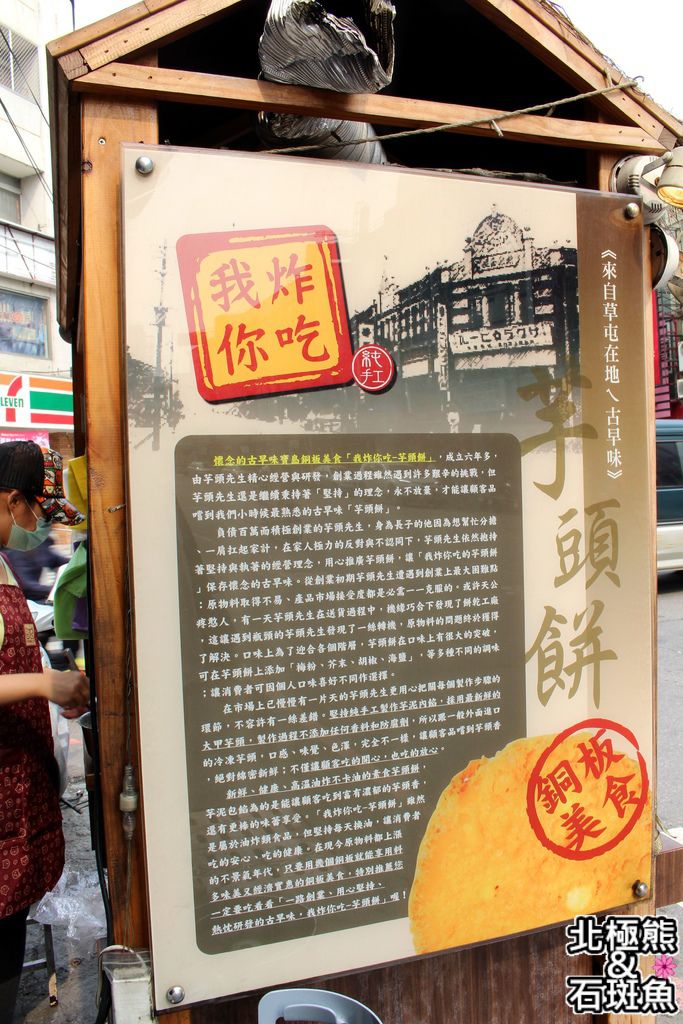 我炸
你吃
純手工
《來自草屯在地ㄟ古早味》
芋頭餅
懷念的古早味寶島銅板美食「我炸你吃-芋頭餅」，成立六年多，
由芋頭先生精心經營與研發，創業過程雖然遇到許多艱辛的挑戰，但
芋頭先生還是繼續秉持著「堅持」的理念，永不放棄，才能讓顧客品
嚐到我們小時候最熟悉的古早味「芋頭餅」。
負債百萬而積極創業的芋頭先生，身為長子的他因為想幫忙分擔
、一肩扛起家計，在家人極力的反對與不認同下，芋頭先生依然抱持
著堅持與執著的經營理念，用心推廣芋頭餅，讓「我炸你吃的芋頭餅
」保存懷念的古早味。從創業初期芋頭先生遭遇到創業上最大困難點
：原物料取得不易、產品市場接受度都是必需一一克服的。或許天公
疼憨人，有一天芋頭先生在送貨過程中，機緣巧合下發現了餅乾工廠
，這讓遇到瓶頸的芋頭先生發現了一絲轉機，原物料的問題終於獲得
了解決。口味上為了迎合各個階層，芋頭餅在口味上有很大的突破，
可在芋頭餅上添加「梅粉、芥末、胡椒、海鹽」，等多種不同的調味
；讓消費者可因個人口味喜好不同作選擇。
在市場上已慢慢有一片天的芋頭先生更用心把關每個製作步驟的
環節，不容許有一絲差錯。堅持純手工製作芋泥內餡，採用最新鮮的
大甲芋頭，製作過程不添加任何香料和防腐劑，所以跟一般外面進口
的冷凍芋頭，口感，味覺，色澤，完全不一樣，讓顧客品嚐到芋頭香
，絕對綿密新鮮；不僅讓顧客吃的開心，也吃的放心。
新鮮、健康、高溫油炸不卡油的素食芋頭餅，
芋泥包餡為的是能讓顧客吃到富有濃郁的芋頭香，
還有更棒的味蕾享受。「我炸你吃-芋頭餅」雖然
是屬於油炸類食品，但堅持每天換油，讓消費者
吃的安心、吃的健康。在現今原物料都上漲
的不景氣年代，只要用幾個銅板就能享用料
多味美又經濟實惠的銅板美食，特別推薦您
一定要吃看看「一路創業、用心堅持、
熱忱研發的古早味，我炸你吃-芋頭餅」喔！
銅板
美食
ELEVEN
北極熊
&
石斑魚